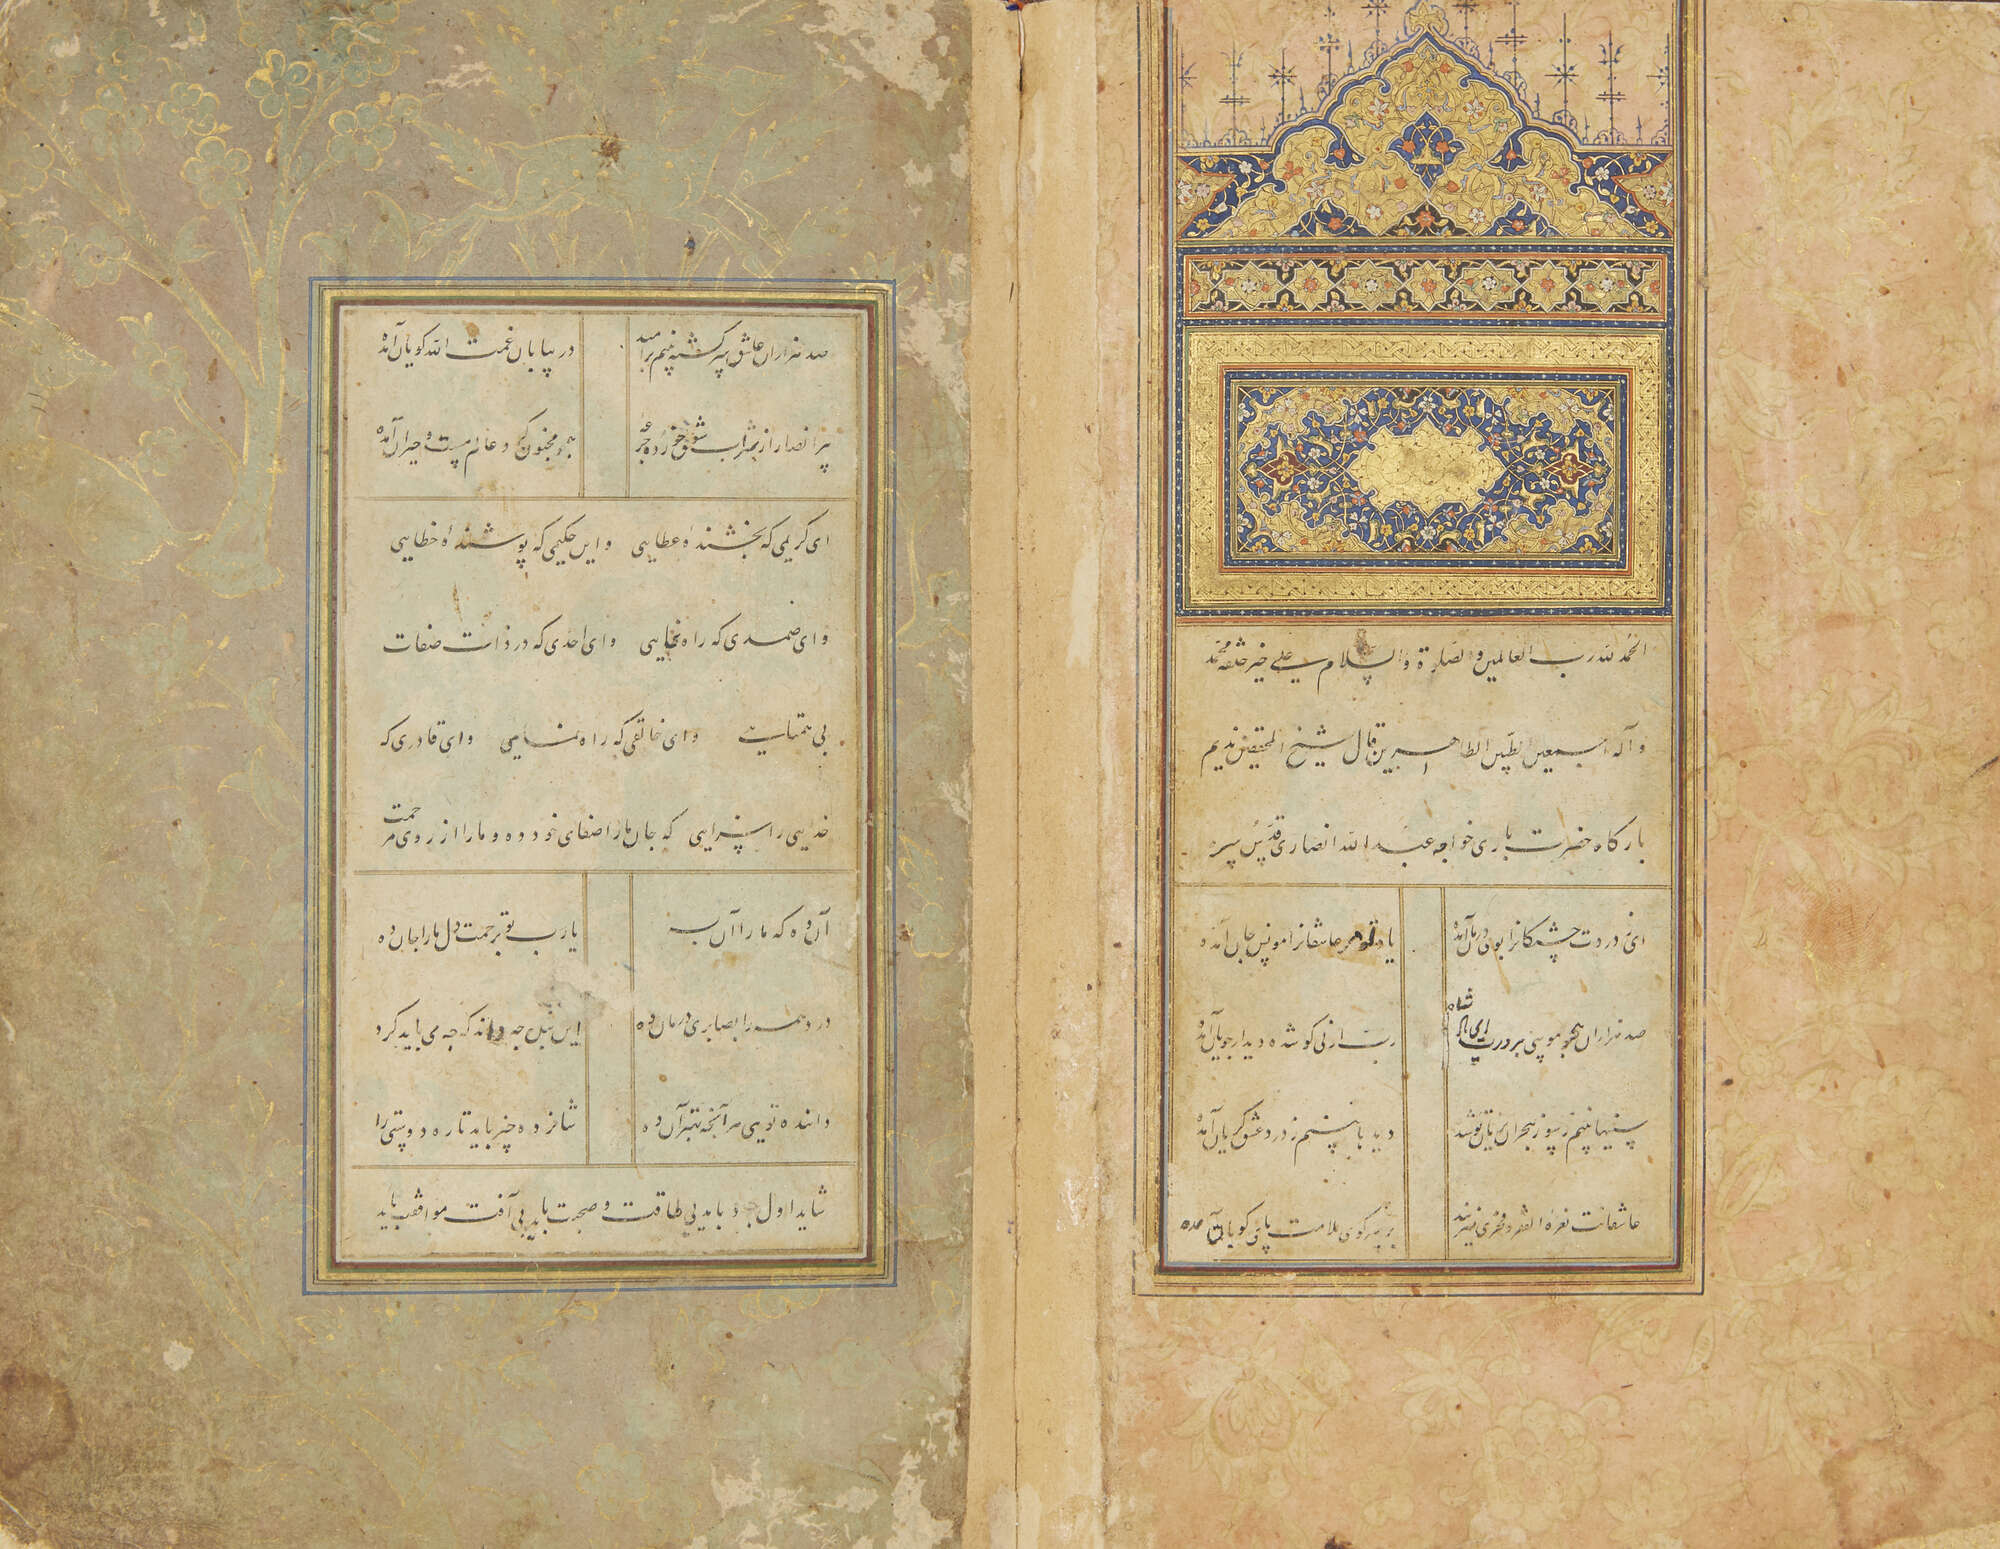 الحمد لله رب العالمین و الصلوة والسلام علی خیر خلقه محمد
و آله اجمعین الطیبین الطاهرین قال شیخ المحققین ندیم
بارگاه حضرت باری خواجه عبد الله انصاری قدس سره
ای ز دردت خستگانرا بوی درمان آمده یاد تو مر عاشقانرا مونس جان آمده
صد هزاران همچو موسی بر درت ای پادشاه رب ارنی گو شده دیدار جویان آمده
سینها بینم ز سوز هجر تو بریان شده دیدها بینم ز درد عشق گریان آمده
عاشقانت نعره الفقر و فخری میزنند بر سر کوی ملامت پای کوبان آمده
صد هزاران عاشق سرگشته بینم بر امید در بیابان غمت الله گویان آمده
پیر انصار از شراب شوق خورده جرعه همچو مجنون گرد عالم مست و حیران آمده
ای کریمی که بخشنده عطایی و ای حکیمی که پوشنده خطایی
و ای صمدی که راه نمایی و ای احدی که در ذات و صفات
بی همتایی و ای خالقی که راه نمایی و ای قادری که
خدایی را سزایی که جان ما را صفای خود ده و ما را از روی رحمت
آن ده که ما را آن به یا رب تو برحمت دل ما را جان ده
درد همه را بصابری درمان ده این بنده چه داند که چه می باید کرد
داننده تویی هر آنچه بهتر آن ده شانزده چیز باید تا ره دوستی را
شاید اول جود باید بی طاقت و صحبت باید بی آفت موافقت باید